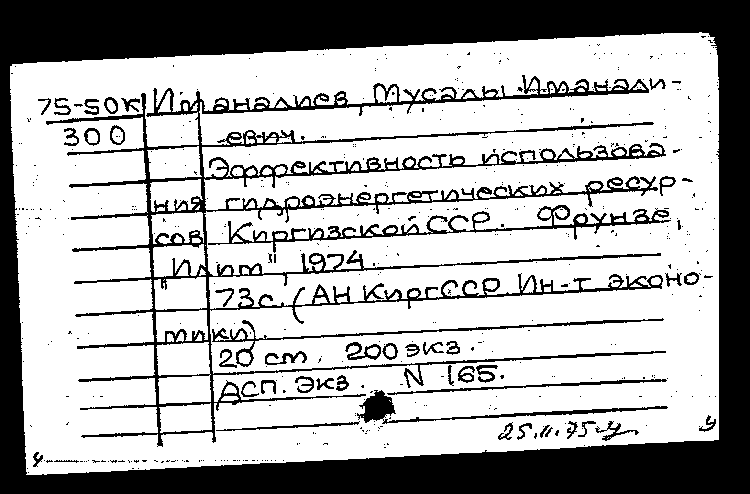 75-50к Иманалиев, Мусалы Иманали-
300 евич.
Эффективность использова-
ния гидроэнергетических ресур-
сов Киргизской ССР. Фрунзе,
"Илим", 1974.
73с. (АН КиргССР Ин-т эконо-
мики).
20 см. 200 экз.
АСП. Экз. N 165.
25.11.75